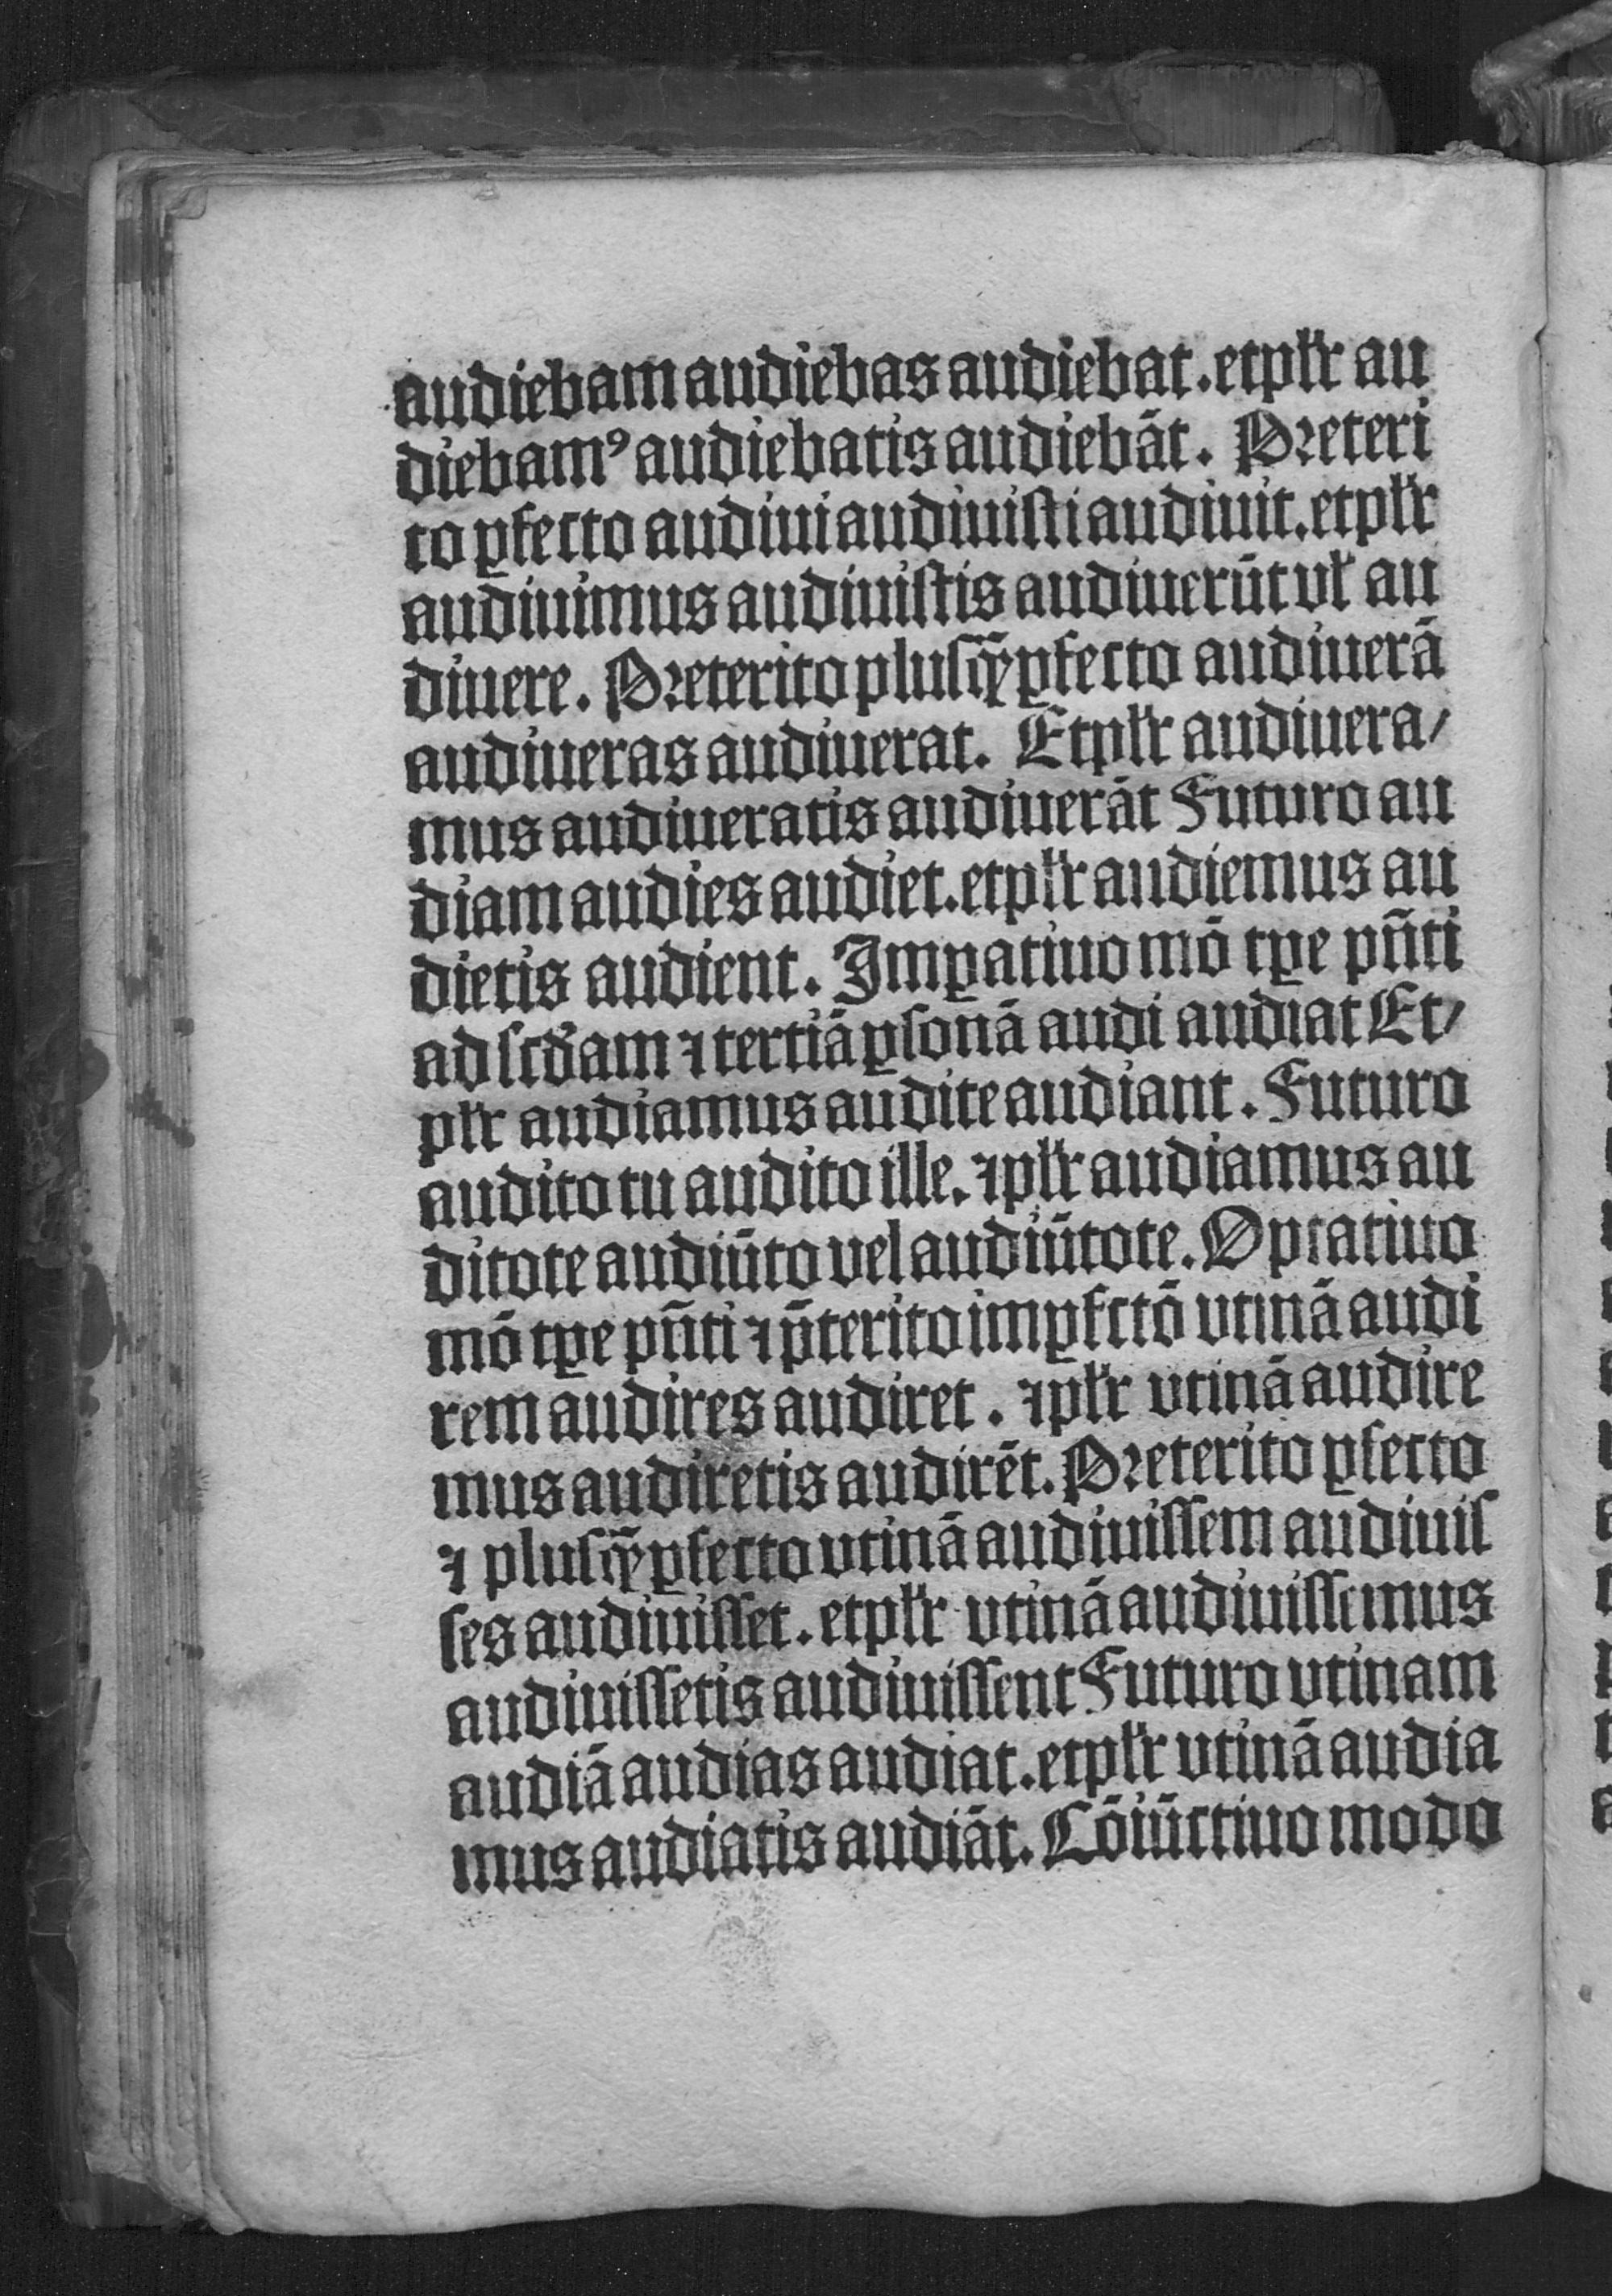 audiebam audiebas audiebat. et pl̄r au
diebamꝰ audiebatis audiebāt. Preteri
to ꝑfecto audiui audiuisti audiuit. et pl̄r
audiuimus audiuistis audiuerūt vl̄ au
diuere. Preterito plusꝙ̄ꝑfecto audiuerā
audiueras audiuerat. Et pl̄r audiuera/
mus audiueratis audiuerāt Futuro au
diam audies audiet. et pl̄r audiemus au
dietis audient. Imꝑatiuo mō tꝑe pn̄ti
ad scd̄am ⁊ tertiā ꝑsonā audi audiat Et/
pl̄r audiamus audite audiant. Futuro
audito tu audito ille. ⁊ pl̄r audiamus au
ditote audiūto vel audiūtote. Optatiuo
mō tꝑe pn̄ti ⁊ p̄terito imꝑfctō vtinā audi
rem audires audiret. ⁊ pl̄r vtinā audire
mus audiretis audirēt. Preterito ꝑfecto
⁊ plusꝙ̄ꝑfecto vtinā audiuissem audiuis
ses audiuisset. et pl̄r vtinā audiuissemus
audiuissetis audiuissent Futuro vtinam
audiā audias audiat. et pl̄r vtinā audia
mus audiatis audiāt. Cōiūctiuo modo